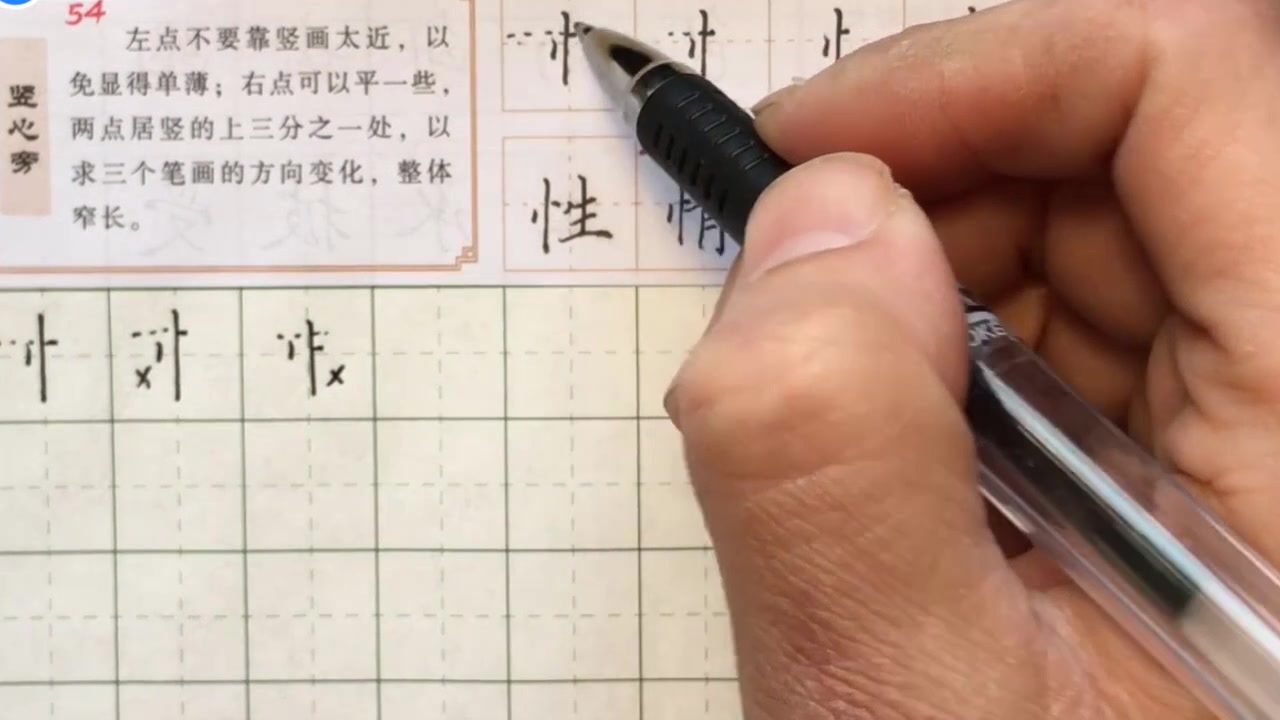 54
竖心旁
左点不要靠竖画太近，以
免显得单薄；右点可以平一些，
两点居竖的上三分之一处，以
求三个笔画的方向变化，整体
窄长。
忄 忄 忄
性 情
忄 忄 x 忄 x
OKE